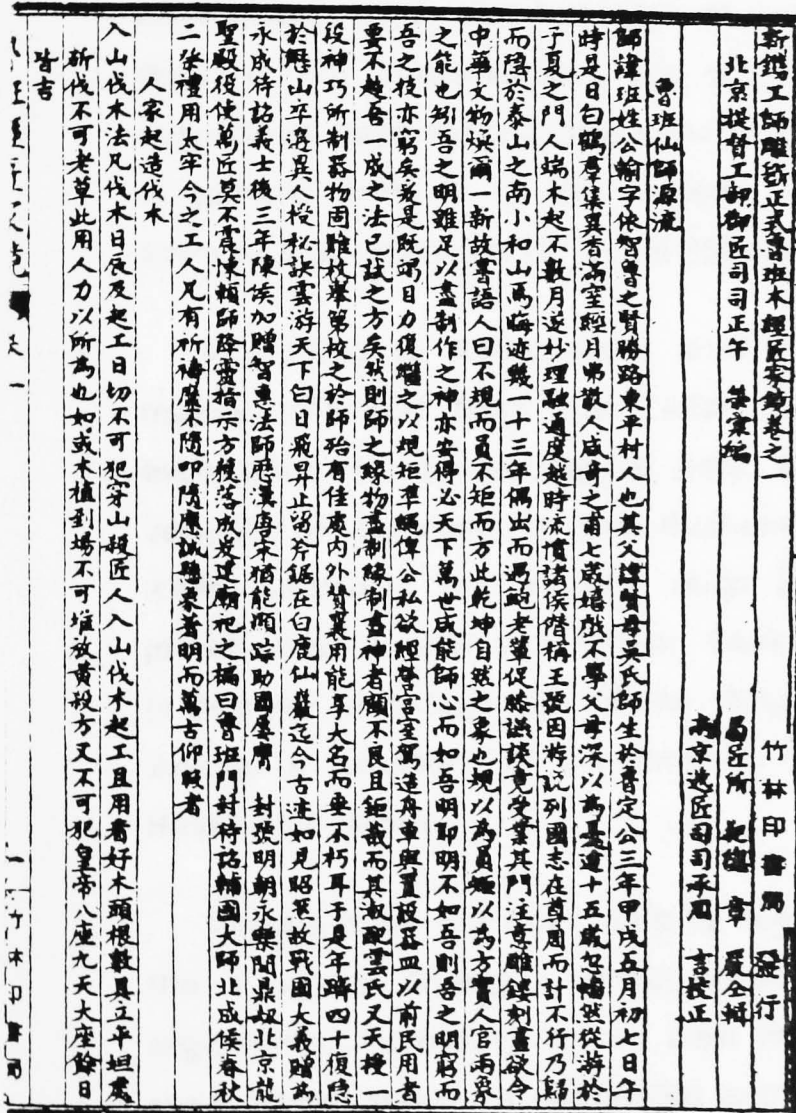 新鐫工師雕斲正式魯班木經匠家鏡卷之一
竹林印書局 發行
北京提督工部御匠司司正午 榮彙編
局匠所 把總 章 嚴仝輯
南京逓匠司司承周 言校正
魯班仙師源流
師諱班姓公輸字依智魯之賢勝路東平村人也其父諱賢母吳氏師生於魯定公三年甲戌五月初七日午
時是日白鶴羣集異香滿室經月弗散人咸奇之甫七歲嬉戲不學父母深以為憂迨十五歲忽幡然從游於
子夏之門人端木起不數月遂妙理融通度越時流憤諸侯僭稱王號因游說列國志在尊周而計不行乃歸
而隱於泰山之南小和山焉晦迹幾一十三年偶出而遇鮑老輩促膝讌談竟受業其門注意雕鏤刻畫欲令
中華文物煥爾一新故嘗語人曰不規而員不矩而方此乾坤自然之象也規以為員矩以為方實人官兩象
之能也矧吾之明雖足以盡制作之神亦安得必天下萬世咸能師心而如吾明耶明不如吾則吾之明窮而
吾之技亦窮矣爰是既竭目力復繼之以規矩準繩俾公私欲經營宮室駕造舟車與置設器皿以前民用者
要不越吾一成之法已試之方矣然則師之緣物盡制緣制盡神者顧不良且鉅哉而其淑配雲氏又天授一
段神巧所制器物固難枚舉第較之於師殆有佳處內外贊襄用能享大名而垂不朽耳于是年躋四十復隱
於歷山卒遘異人授秘訣雲游天下白日飛昇止留斧鋸在白鹿仙巖迄今古迹如見昭然故戰國大義贈為
永成待詔義士後三年陳侯加贈智惠法師歷漢唐宋猶能顯踪助國屢膺 封號明朝永樂間鼎建北京龍
聖殿役使萬匠莫不震悚賴師降靈指示方獲落成爰建廟祀之扁曰魯班門封待詔輔國大師北成侯春秋
二祭禮用太牢今之工人凡有祈禱靡不隨叩隨應誠懸象著明而萬古仰照者
人家起造伐木
入山伐木法凡伐木日辰及起工日切不可犯穿山殺匠人入山伐木起工且用看好木頭根數具立平坦處
斫伐不可老草此用人力以所為也如或木植到場不可堆放黃殺方又不可犯皇帝八座九天大座餘日
皆吉
匠家鏡 卷一
一 竹林印書局